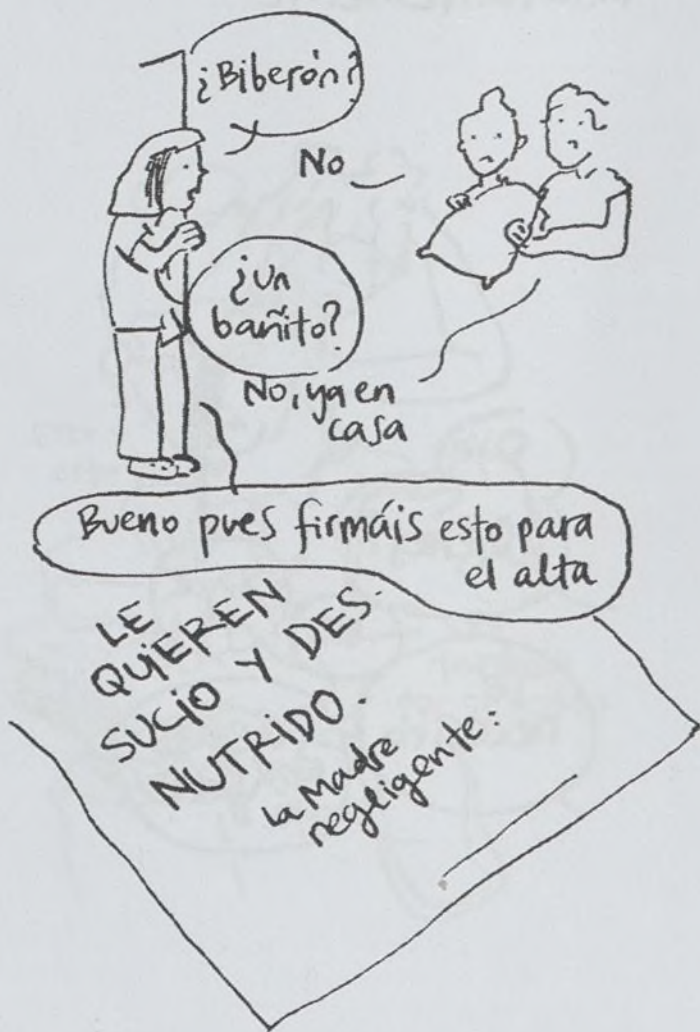 ¿Biberón?
No
¿Un
bañito?
No, ya en
casa
Bueno pues firmáis esto para
el alta
LE
QUIEREN
SUCIO Y DES-
NUTRIDO.
La Madre
negligente: